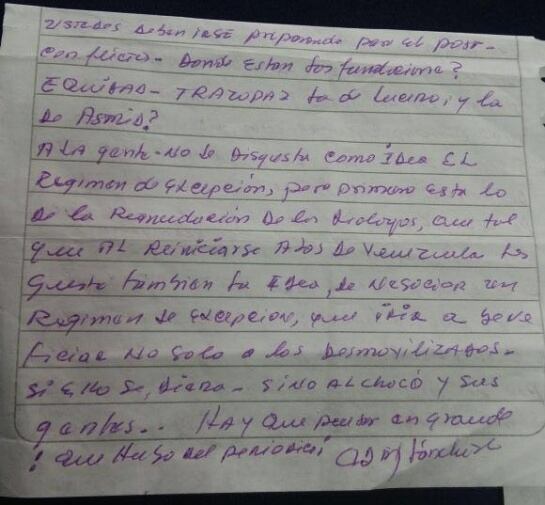 ustedes deben irse preparando para el post-
conflicto- Donde estan las fundaciones?
EQUIDAD- TRATO PAZ la de Lucero, y la
de Astrid?
A LA gente-NO le Disgusta como IDea EL
Regimen de excepción, pero primero esta lo
De la Reanudación De los Dialogos, que tal
que AL Reiniciarse A los De Venezuela les
Gusta tambien la IDea, de Negociar un
Regimen de excepcion, que iria a bene
ficiar No solo a los DesmoviliZADOS-
Si Ello se, Diera- SiNO AL CHOCÓ y sus
gentes.. HAY Que pensar en grande
! que Hubo del periodico!